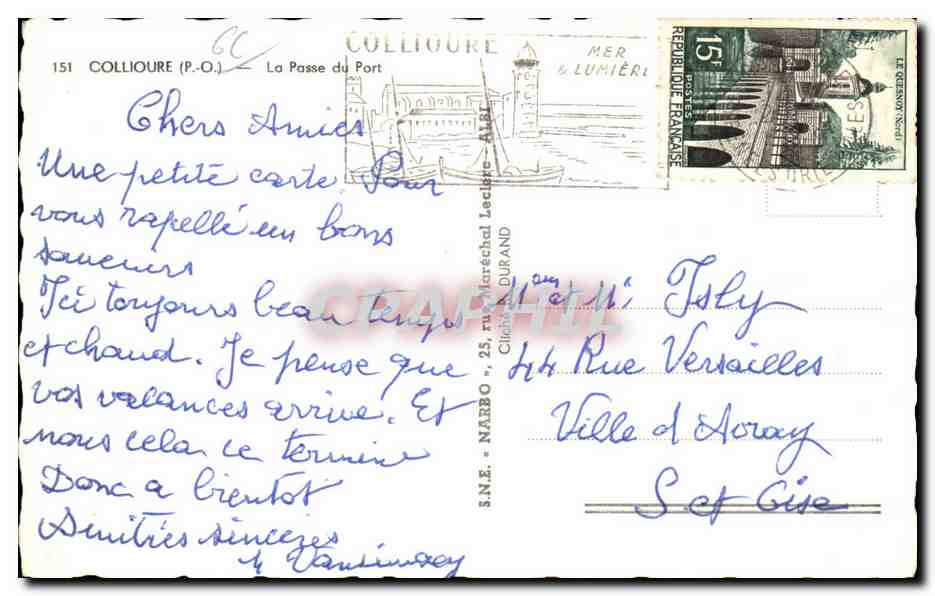 151 COLLIOURE (P.-O.) — La Passe du Port
6C
COLLIOURE
MER
& LUMIÈRE
15F
RÉPUBLIQUE FRANÇAISE
POSTES
LE QUESNOY (Nord)
Chers Amies
Une petite carte. Pour
vous rapellé un bons
souvenirs
Ici toujours beau temps
et chaud. Je pense que
vos vacances arrive. Et
nous cela ce termine
Donc a bientot
Amitiés sincères
S.N.E. « NARBO », 25, rue Maréchal Leclerc - ALBI
Cliché A. DURAND
CPAPHIL
Mme et Mr Isly
44 Rue Versailles
Ville d Avray
S et Oise